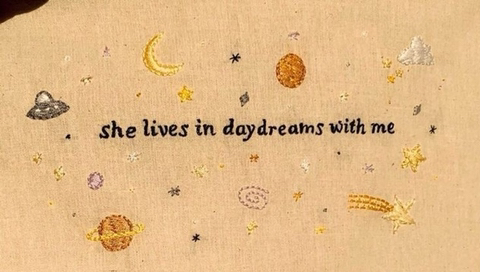 she lives in daydreams with me